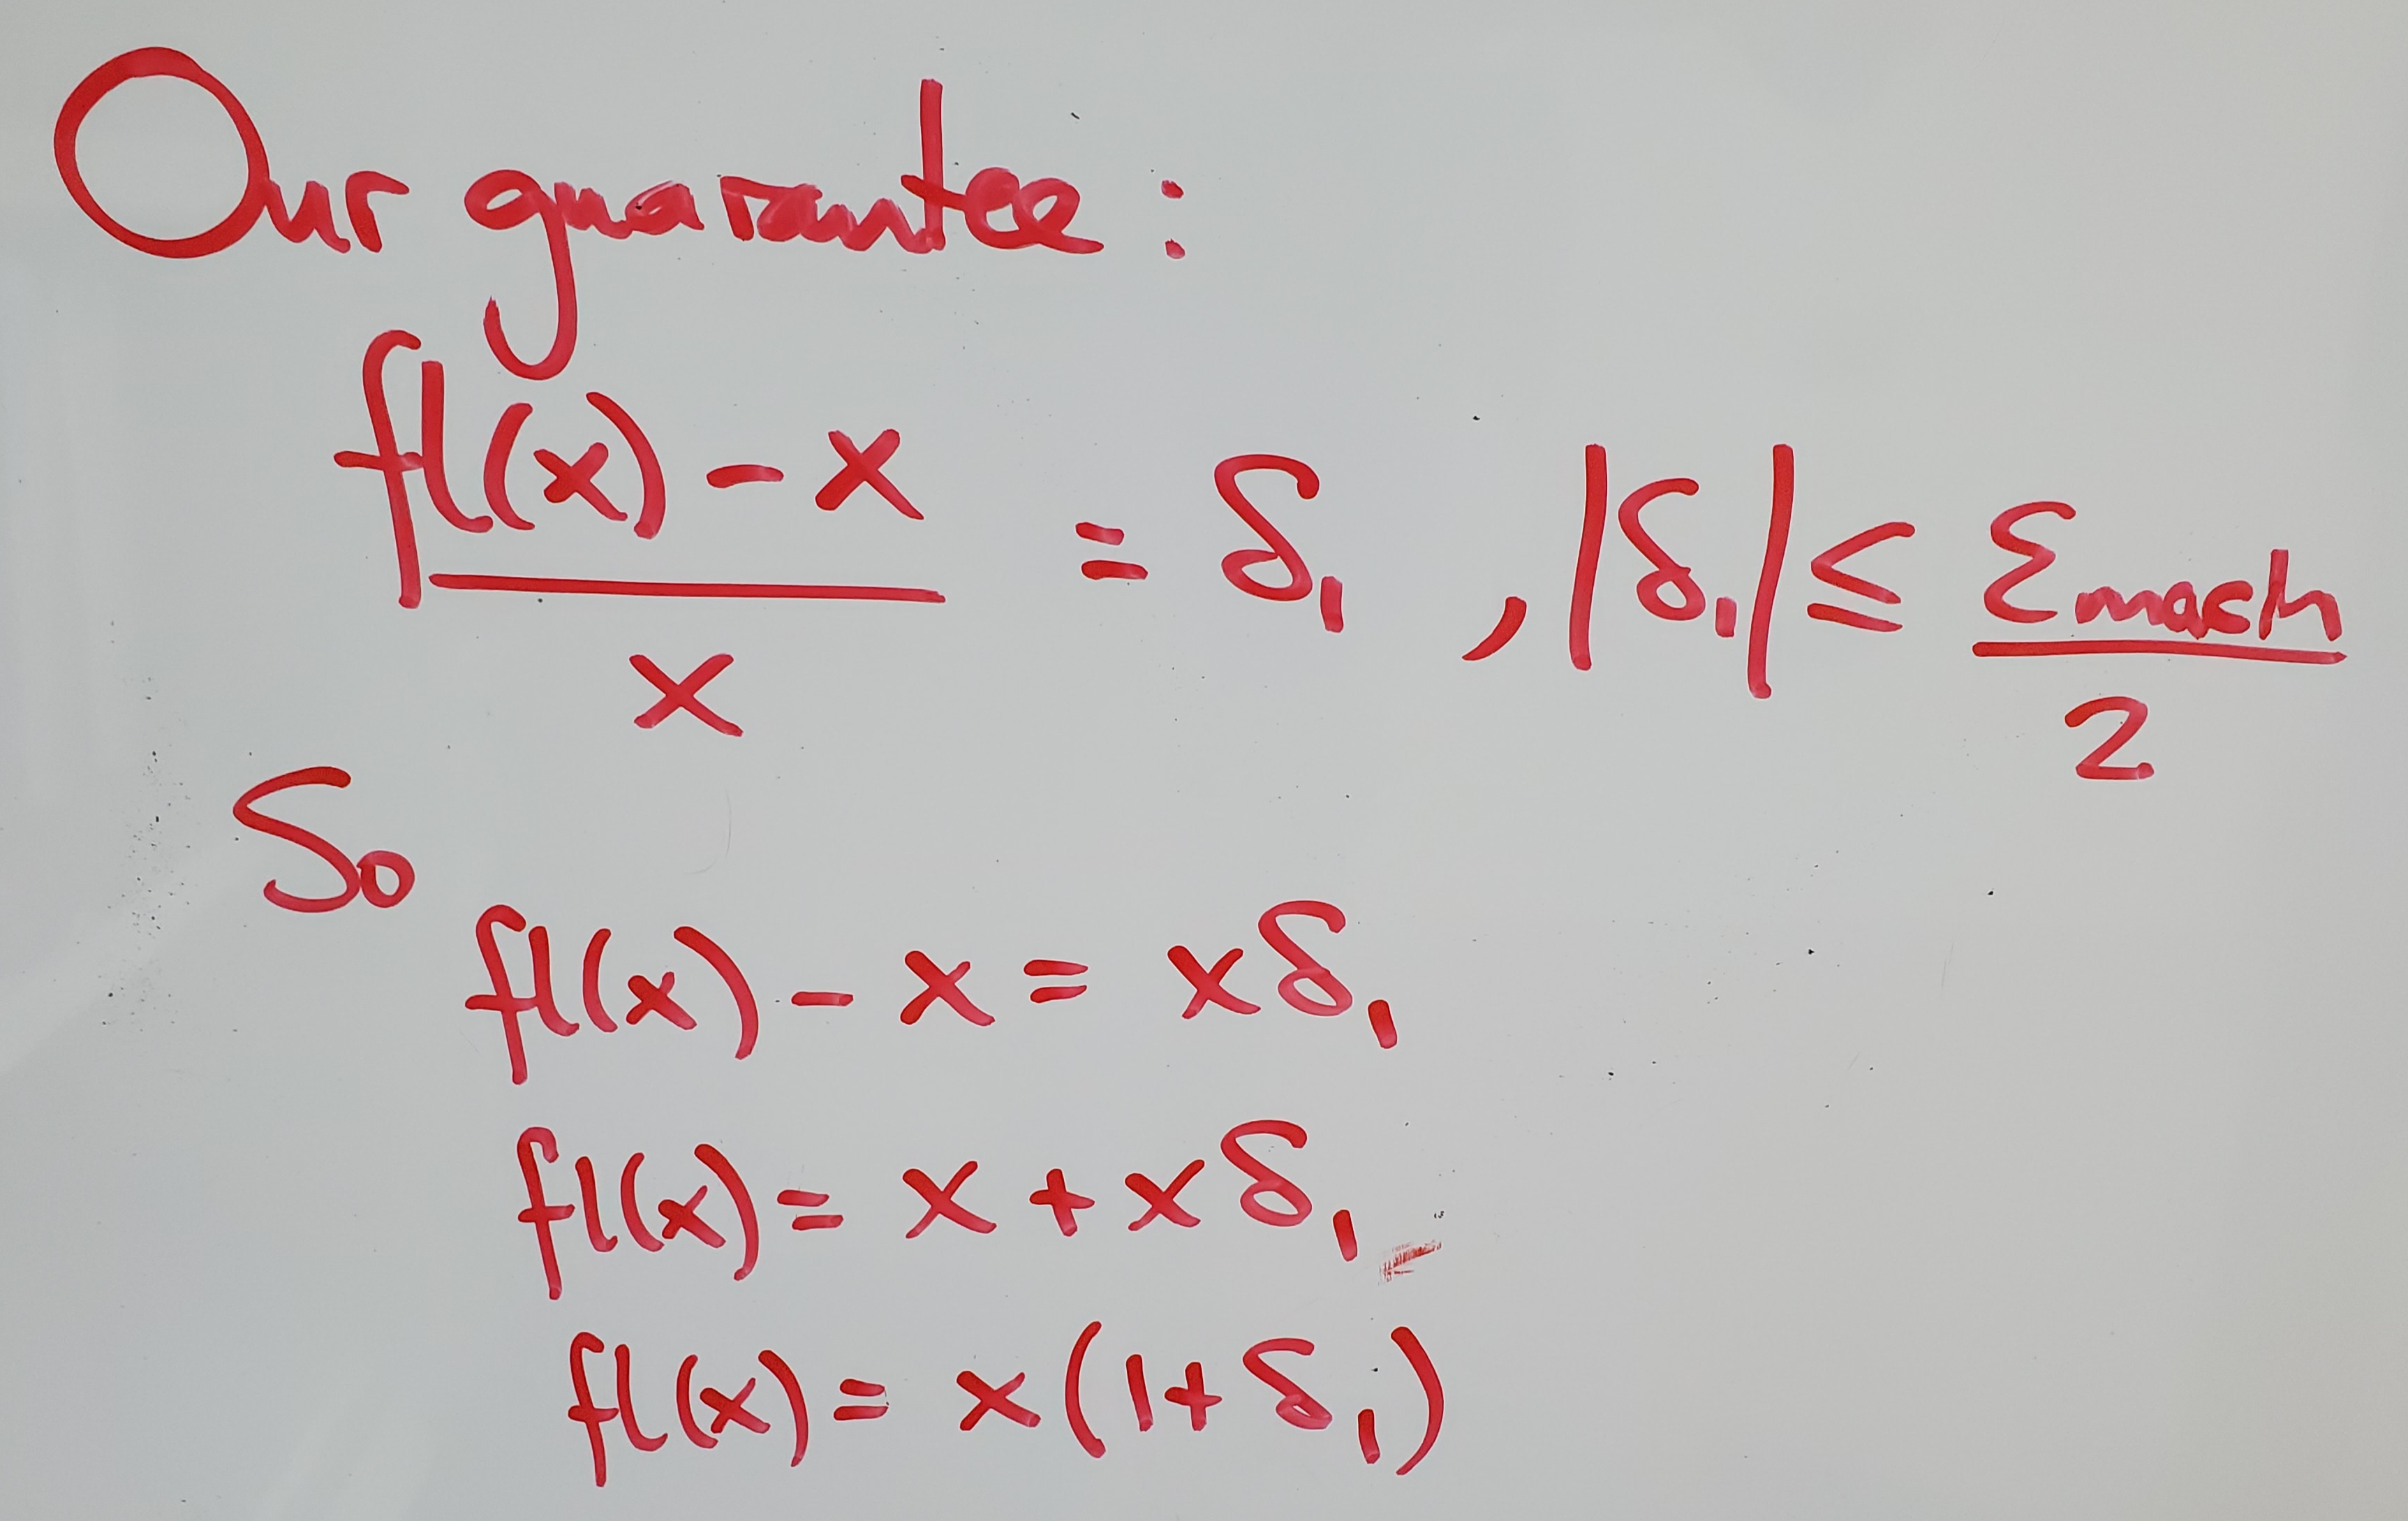 Our guarantee:
fl(x) - x / x = δ₁ , |δ₁| ≤ εmach / 2
So
fl(x) - x = xδ₁
fl(x) = x + xδ₁
fl(x) = x(1+δ₁)